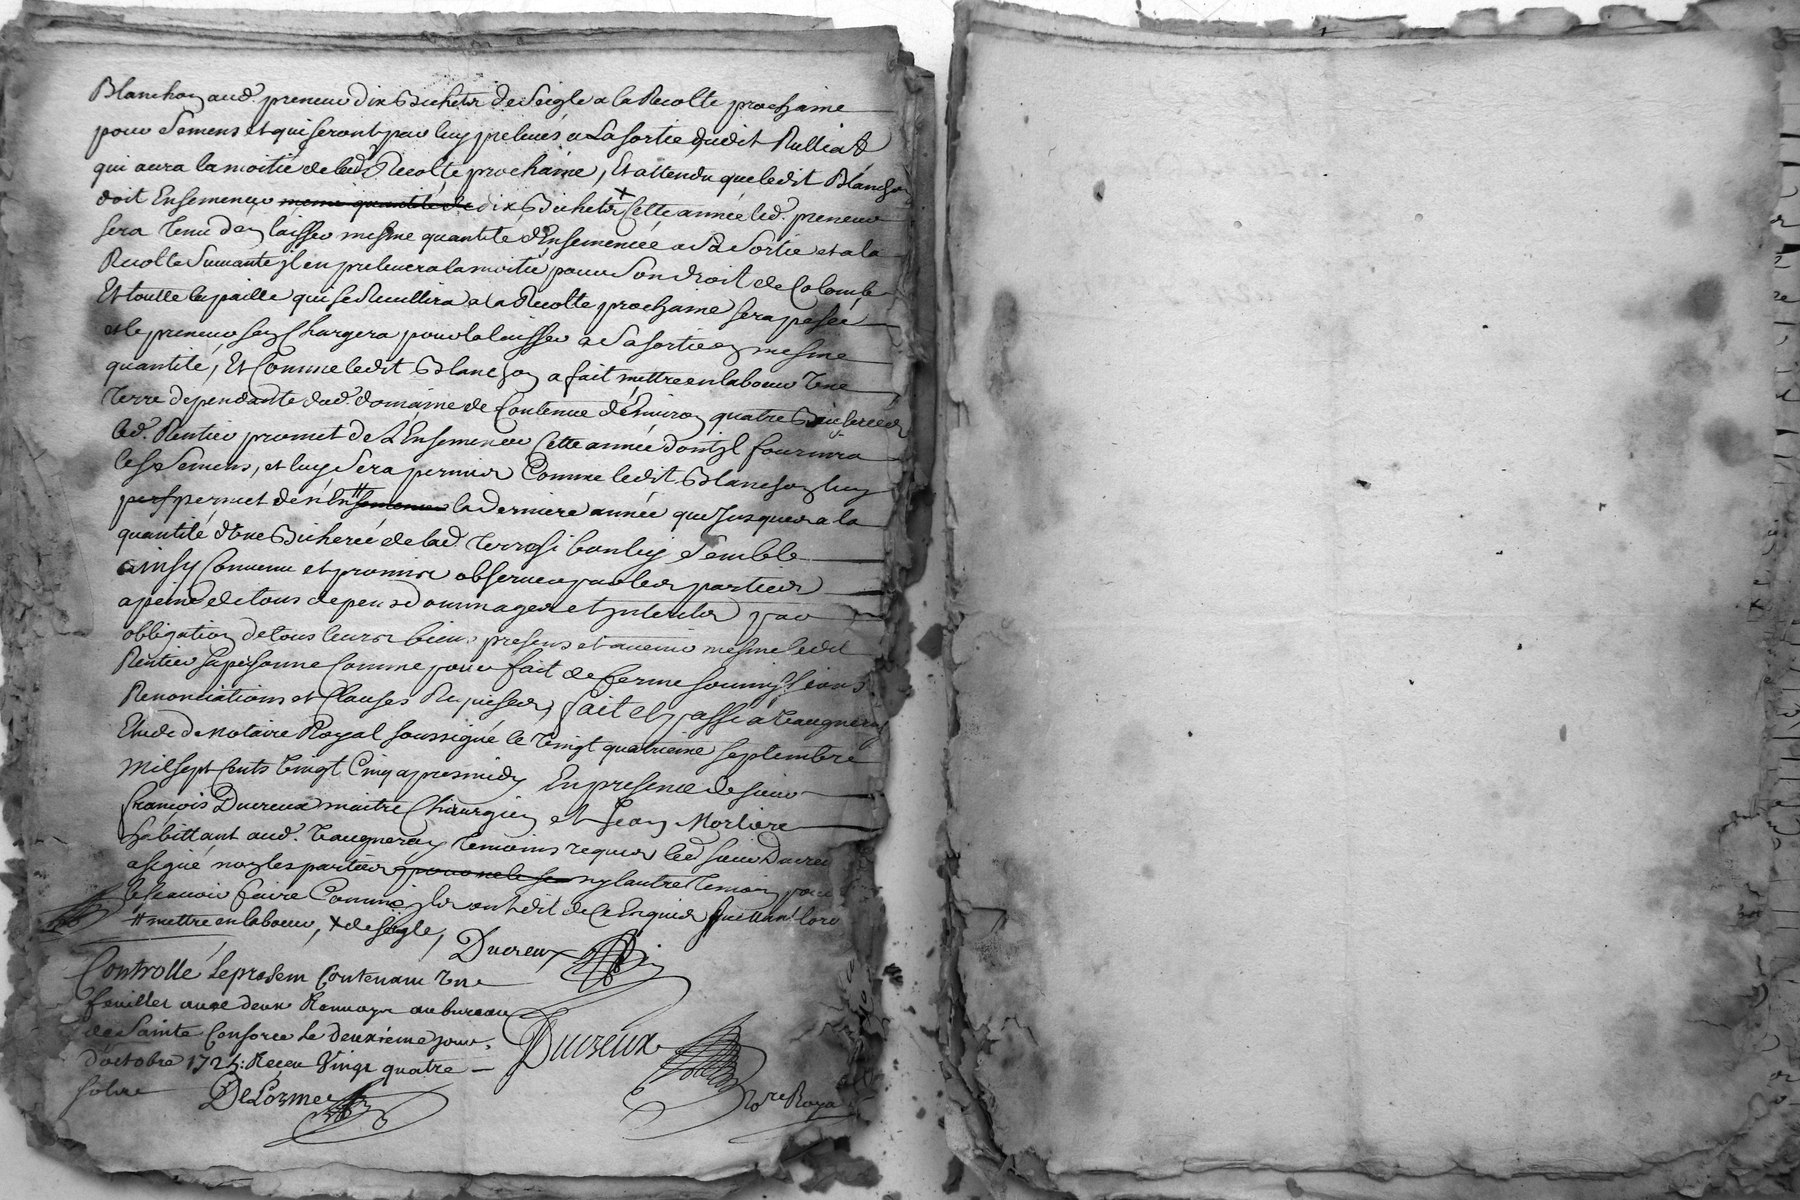 Blanchon aud. preneur dix Bichets de Seigle a la Recolte prochaine
pour Semens et qui seront par luy prelevés a La sortie dudit Rulliat
qui aura la moitié de lad. Recolte prochaine, Et attendu que ledit Blanchon
doit Ensemencer mesme quantité de dix Bichets Cette année led. preneur
sera Tenu d'en laisser mesme quantité d'Ensemencée a Sa Sortie et a la
Recolte Suivante Il en prelevera la moitié pour Son droit de Colombe
Et toutte la paille qui se Recullira a la Recolte prochaine sera pesée
et le preneur s'en Chargera pour la laisser a Sa sortie en mesme
quantité, Et Comme ledit Blanchon a fait mettre en labour Une
Terre dependante dud. domaine de Contenue d'Environ quatre Bicherées
led. Rentier promet de L'Ensemencer Cette année dont Il fournira
les Semens, et luy Sera permis Comme ledit Blanchon luy
permet de n'En semencer la Derniere année que Jusques a la
quantité d'Une Bicherée de lad. Terre si bon luy Semble
ainsy Convenu et promis observer par les parties
a peine de tous depens dommages et Interets par
obligation de tous leurs biens presens et avenir mesme ledit
Rentier sa personne Comme pour fait de ferme soumissions
Renonciations et Clauses Requises, fait et passé a Vaugneray
Etude de Notaire Royal soussigné le Vingt quatrieme septembre
Mil sept Cents Vingt Cinq apres midy En presence de sieur
françois Ducreux maitre Chirurgien et Jean Morliere
habittant aud. Vaugneray Temoins requis led. sieur Ducreu
a signé non les parties pour ne le ny l'autre Temoin pour
le sçavoir faire Comme Ils ont dit de Ce Enquis
# mettre en labour, x de seigle, Ducreux
Controllé Le presem Contenant Une
feuillet avec deux Renvoys au bureau
de Sainte Consorce Le deuxieme jour
d'octobre 1725: Receu Vingt quatre
sols DeLorme
Ducreux
No.re Roya